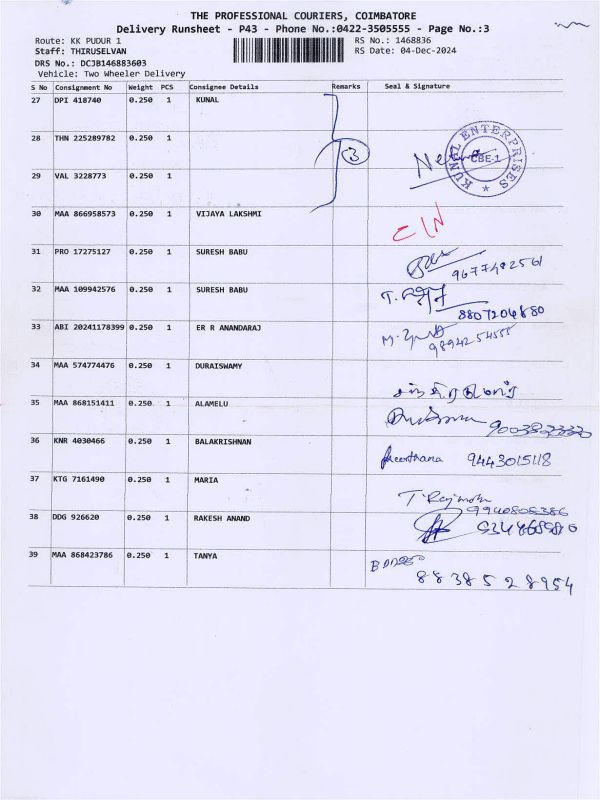 THE PROFESSIONAL COURIERS, COIMBATORE
Delivery Runsheet - P43 - Phone No.:0422-3505555 - Page No.:3
Route: KK PUDUR 1 RS No.: 1468836
Staff: THIRUSELVAN RS Date: 04-Dec-2024
DRS No.: DCJB146883603
Vehicle: Two Wheeler Delivery
S No Consignment No Weight PCS Consignee Details Remarks Seal & Signature
27 DPI 418740 0.250 1 KUNAL
28 THN 225289782 0.250 1
3
KUNAL ENTERPRISES CBE-1
29 VAL 3228773 0.250 1
30 MAA 866958573 0.250 1 VIJAYA LAKSHMI
C/N
31 PRO 17275127 0.250 1 SURESH BABU
9677482561
32 MAA 109942576 0.250 1 SURESH BABU
8807204880
33 ABI 20241178399 0.250 1 ER R ANANDARAJ
9894254555
34 MAA 574774476 0.250 1 DURAISWAMY
35 MAA 868151411 0.250 1 ALAMELU
36 KNR 4030466 0.250 1 BALAKRISHNAN
Keerthana 9443015118
37 KTG 7161490 0.250 1 MARIA
9940805386
38 DDG 926620 0.250 1 RAKESH ANAND
39 MAA 868423786 0.250 1 TANYA
8838528954